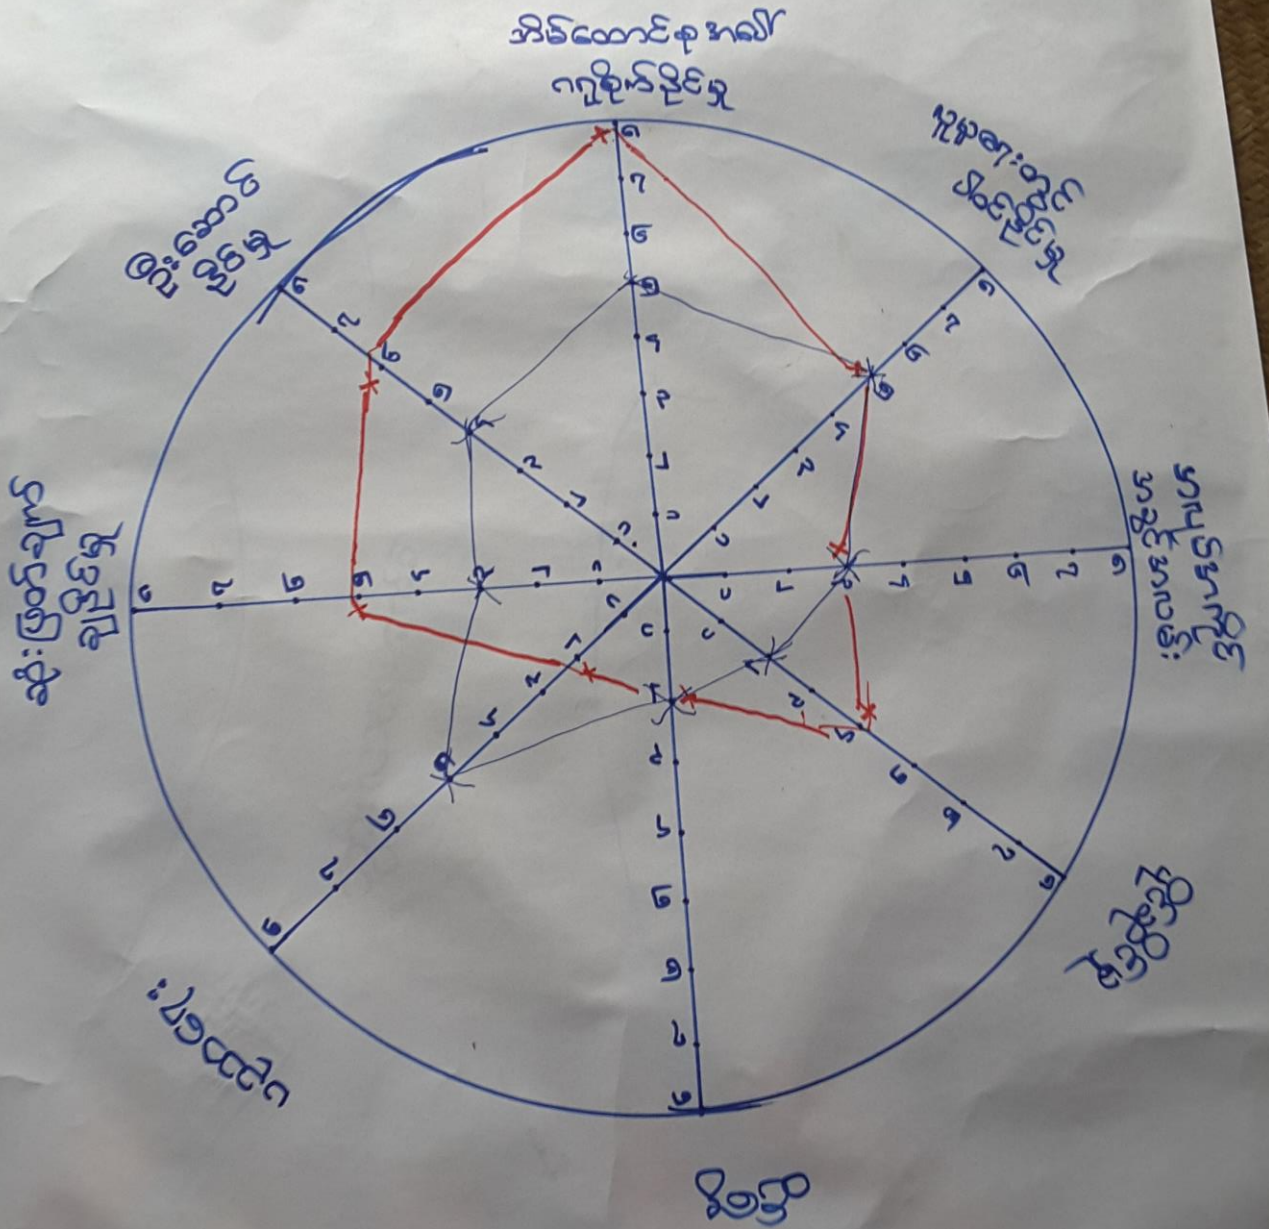 အိမ်ထောင်စုအပေါ်
ဂရုစိုက်နိုင်မှု
လူမှုရေးတွင်
ပါဝင်နိုင်မှု
အလုပ်အကိုင်
အခွင့်အလမ်း
ပညာရေး
ဆုံးဖြတ်ချက်
ချနိုင်မှု
ဦးဆောင်
နိုင်မှု
၈ ၇ ၆ ၅ ၄ ၃ ၂ ၁
၈ ၇ ၆ ၅ ၄ ၃ ၂ ၁
၁ ၂ ၃ ၄ ၅ ၆ ၇ ၈
၁ ၂ ၃ ၄ ၅ ၆ ၇ ၈
၁ ၂ ၃ ၄ ၅ ၆ ၇ ၈
၁ ၂ ၃ ၄ ၅ ၆ ၇ ၈
၈ ၇ ၆ ၅ ၄ ၃ ၂ ၁
၈ ၇ ၆ ၅ ၄ ၃ ၂ ၁